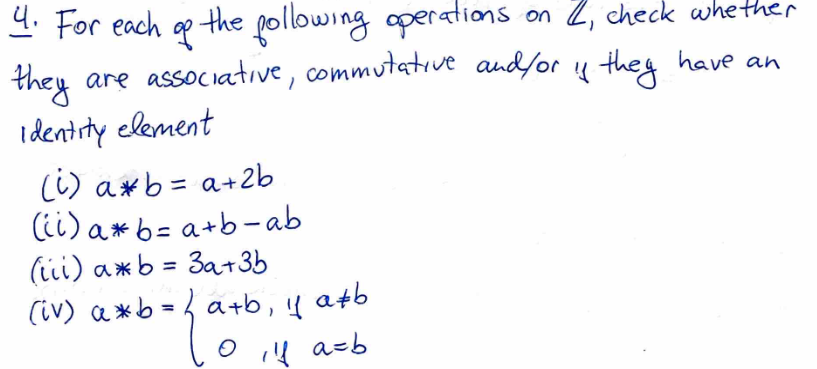 4. For each of the following operations on ℤ, check whether
they are associative, commutative and/or if they have an
identity element
(i) a*b = a+2b
(ii) a*b = a+b-ab
(iii) a*b = 3a+3b
(iv) a*b = { a+b, if a≠b
0, if a=b